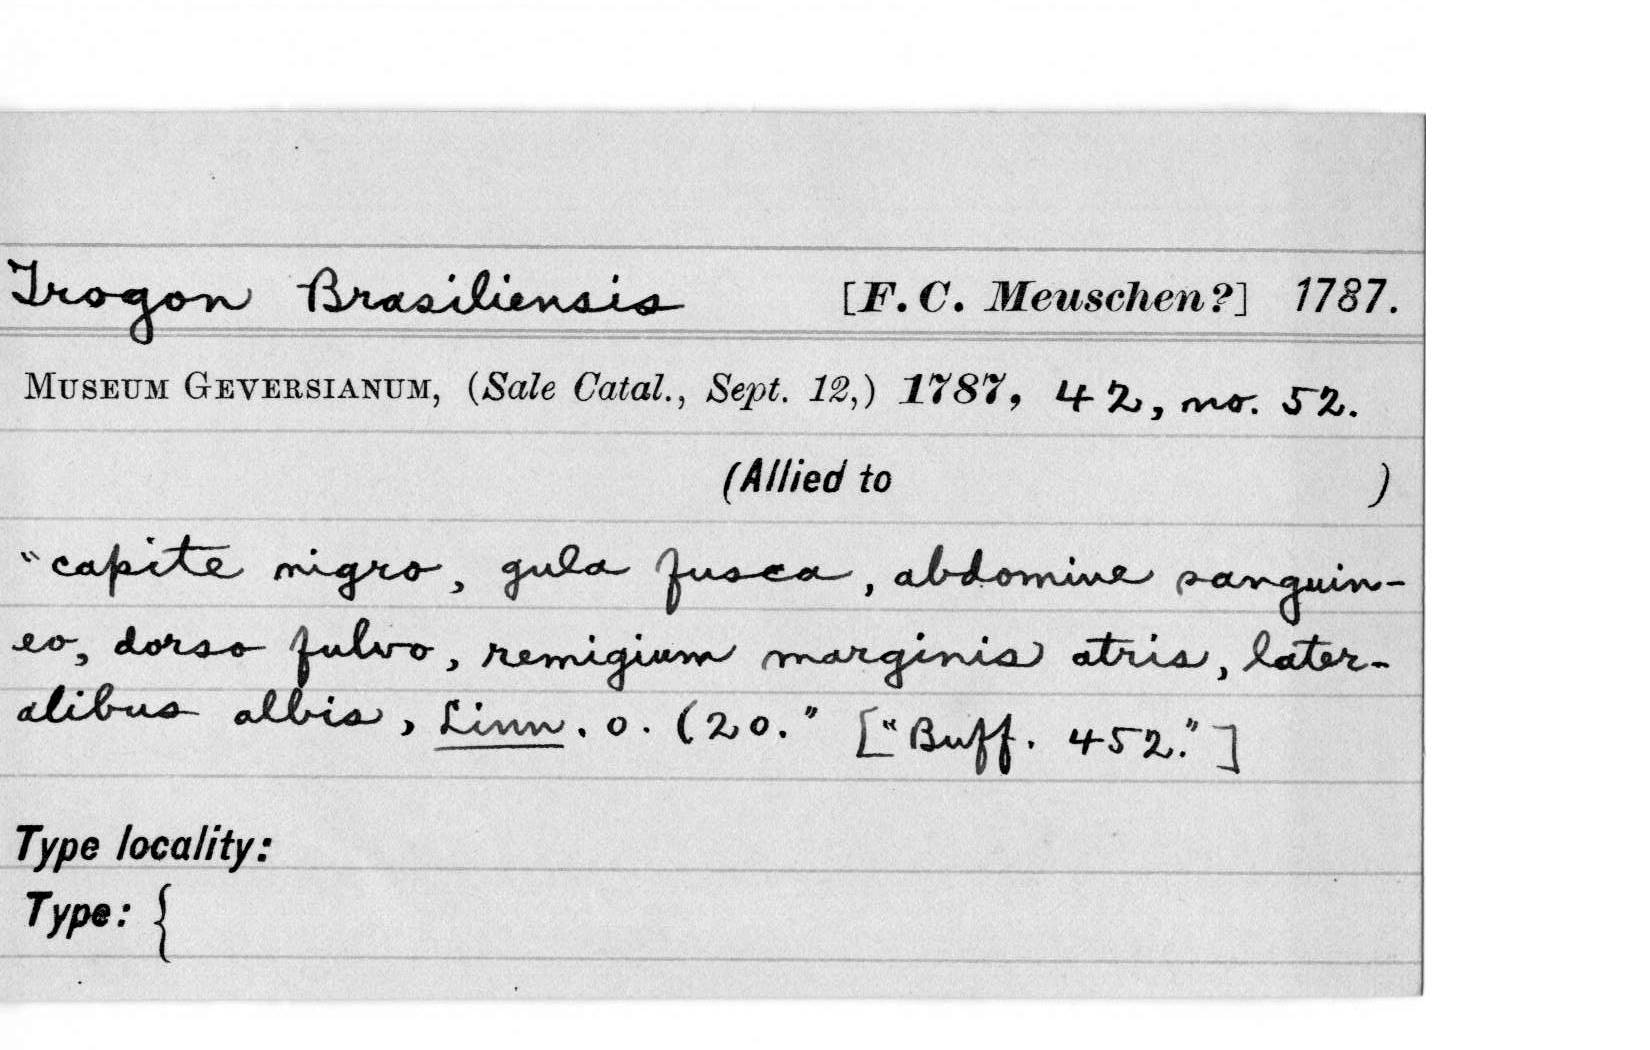 Trogon Brasiliensis [F. C. Meuschen?] 1787.
MUSEUM GEVERSIANUM, (Sale Catal., Sept. 12,) 1787, 42, no. 52.
(Allied to )
"capite nigro, gula fusca, abdomine sanguin-
eo, dorso fulvo, remigium marginis atris, later-
alibus albis, Linn. o. (20." ["Buff. 452."]
Type locality:
Type: {